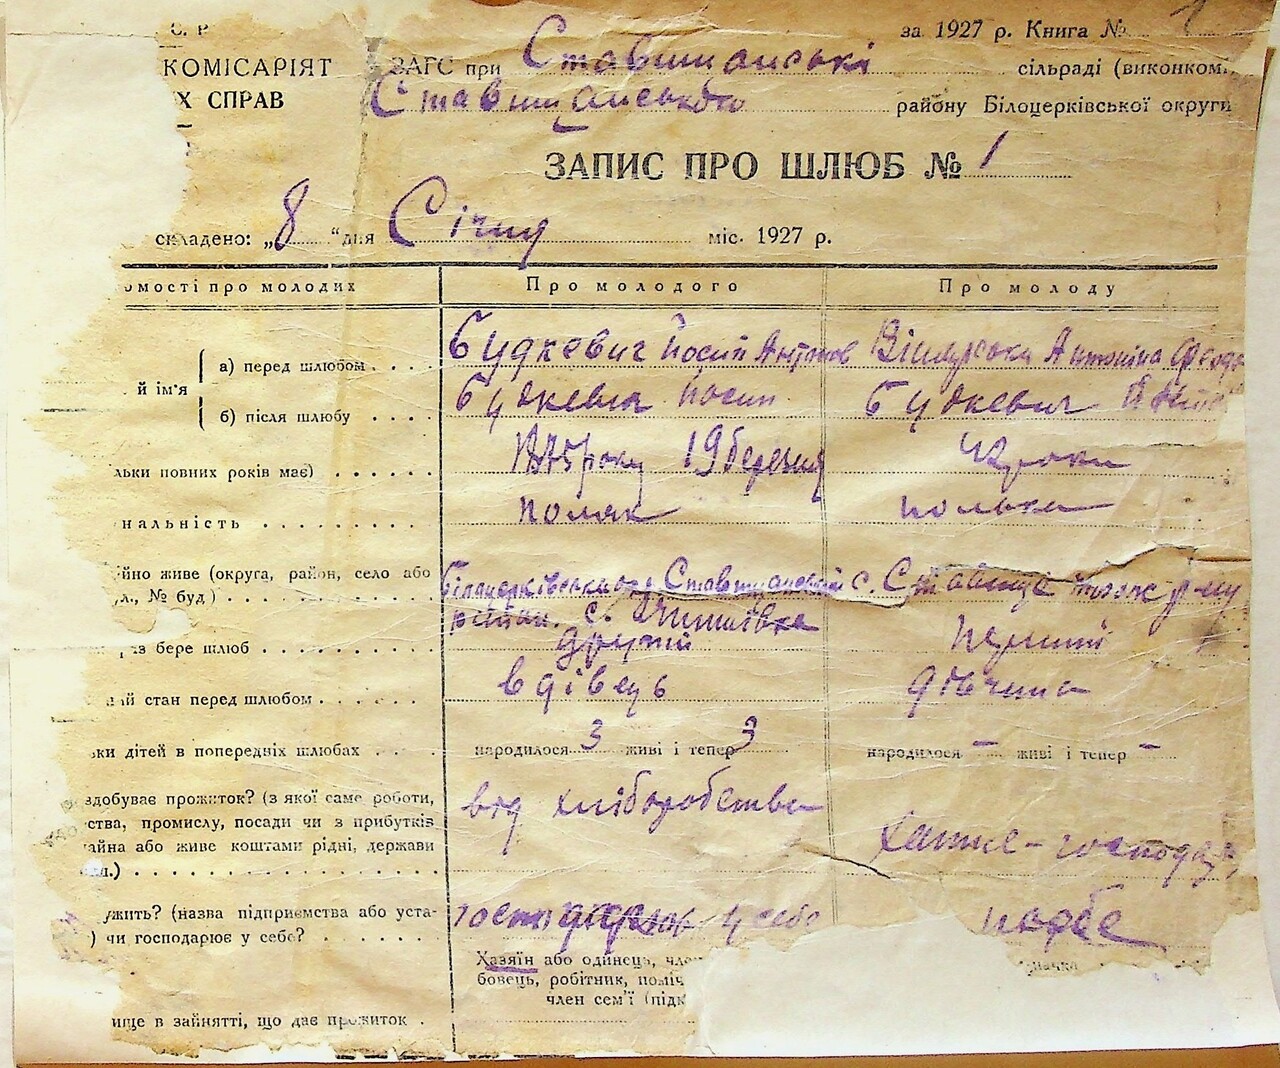 за 1927 р. Книга № 1
КОМІСАРІЯТ ЗАГС при Ставищанські сільраді (виконком
Х СПРАВ Ставищанського району Білоцерківської округи
ЗАПИС ПРО ШЛЮБ № 1
складено: „ 8 “ дня Січня міс. 1927 р.
омості про молодих Про молодого Про молоду
а) перед шлюбом . . . . Будкевич Йосип Антонов Антоніна Феодо
й ім'я
б) після шлюбу . . . . Будкевич Йосип Будкевич
льки повних років має) . . . . . . 1875 року 19 березня 42 роки
нальність . . . . . . . . . поляк полька
ійно живе (округа, район, село або Ставищанский с. Ставище
л., № буд) . . . . . . . . . . район. с.
раз бере шлюб . . . . . . . . другий перший
ий стан перед шлюбом . . . . . . вдівець дівчина
ьки дітей в попередніх шлюбах . . . народилося 3 живі і тепер 3 народилося – живі і тепер –
здобуває прожиток? (з якої саме роботи, від хліборобства
ства, промислу, посади чи з прибутків
айна або живе коштами рідні, держави хатнє-господар
. . . . . . . . . . . . . . . .
ужить? (назва підприємства або уста- у себе
) чи господарює у себе? . . . . . .
Хазяїн або одинець, чле
бовець, робітник, поміч
член сем'ї (підк
ище в занятті, що дає прожиток .